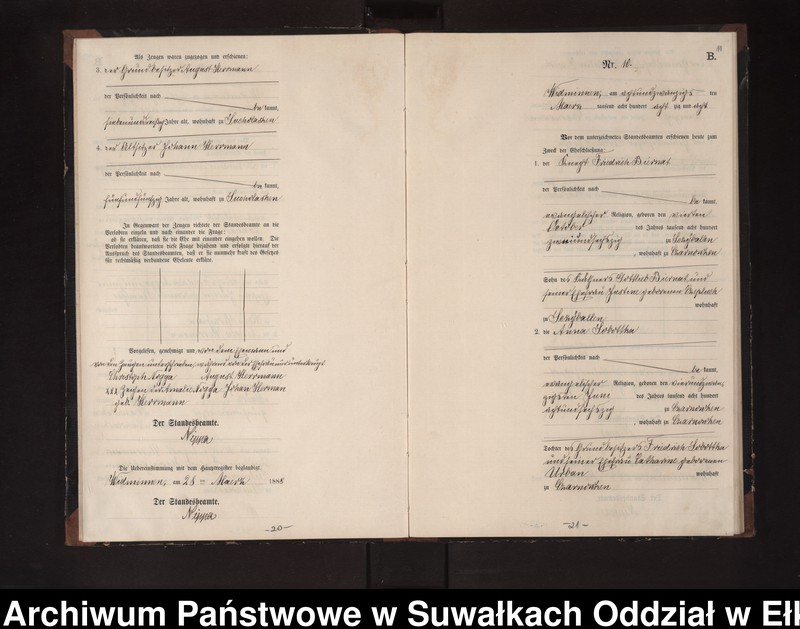 Als Zeugen waren zugezogen und erschienen:
3. der Grundbesitzer August Herrmann
der Persönlichkeit nach
be kannt,
Jahre alt, wohnhaft zu Suczolasken
4. der Altsitzer Johann Herrmann
der Persönlichkeit nach
be kannt,
fünfundfünfzig Jahre alt, wohnhaft zu Suczolasken
In Gegenwart der Zeugen richtete der Standesbeamte an die
Verlobten einzeln und nach einander die Frage:
ob sie erklären, daß sie die Ehe mit einander eingehen wollen. Die
Verlobten beantworteten diese Frage bejahend und erfolgte hierauf der
Ausspruch des Standesbeamten, daß er sie nunmehr kraft des Gesetzes
für rechtmäßig verbundene Eheleute erkläre.
Vorgelesen, genehmigt und von dem Ehemann und
von den Zeugen unterschrieben, während von der Ehefrau
Christoph Rogga August Herrmann
XXX Zeichen der Amalie Rogga Johan Herman
geb. Herrmann
Der Standesbeamte.
Die Uebereinstimmung mit dem Hauptregister beglaubigt.
Widminnen, am 28 ten Maerz 1888
Der Standesbeamte.
-20-
B.
Nr. 10.
Widminnen, am achtundzwanzigsten
Maerz tausend acht hundert acht zig und acht
Vor dem unterzeichneten Standesbeamten erschienen heute zum
Zweck der Eheschließung:
1. der Knecht Friedrich Biernat
der Persönlichkeit nach
be kannt,
evangelischer Religion, geboren den vierten
October des Jahres tausend acht hundert
zweiundsechszig zu Szczyballen
, wohnhaft zu Czarnowken
Sohn des Gottlieb Biernat und
seiner Ehefrau Justine geborenen
wohnhaft
zu Szczyballen
2. die Anna Sobottka
der Persönlichkeit nach
be kannt,
evangelischer Religion, geboren den vierundzwan-
zigsten Juni des Jahres tausend acht hundert
achtundsechszig zu Czarnowken
, wohnhaft zu Czarnowken
Tochter des Grundbesitzers Friedrich Sobottka
und seiner Ehefrau Catharine geborenen
Urban wohnhaft
zu Czarnowken
-21-
Archiwum Państwowe w Suwałkach Oddział w Ełk